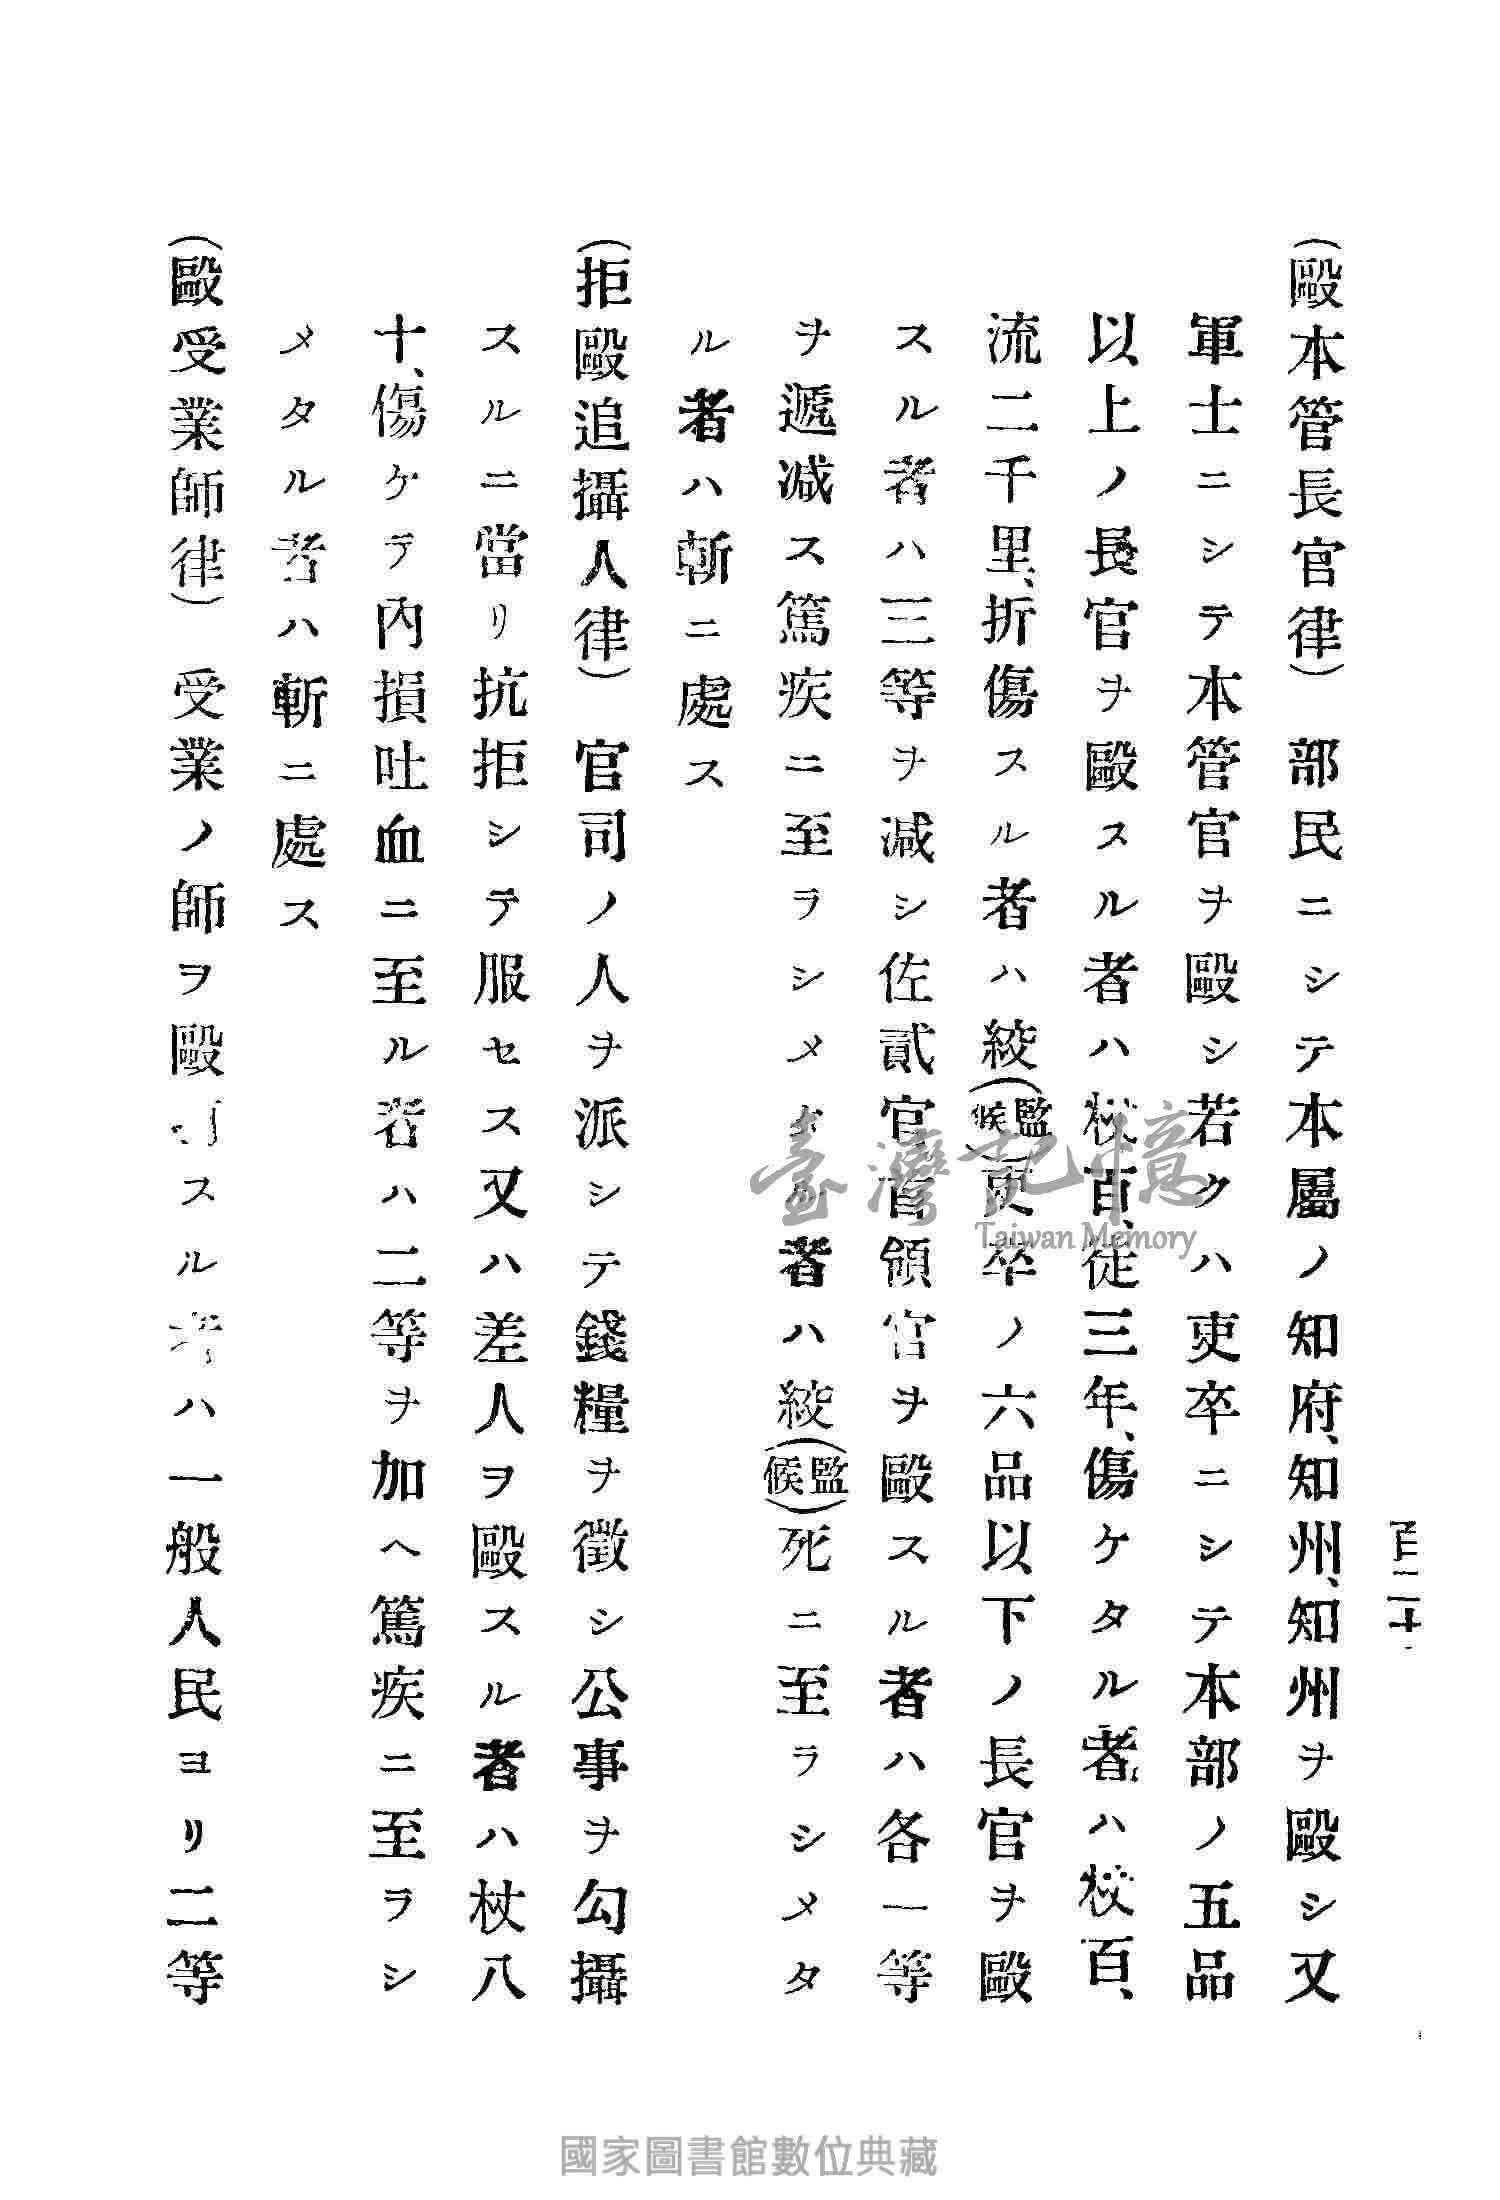 百二十
(毆本管長官律) 部民ニシテ本屬ノ知府、知州、知州ヲ毆シ又
軍士ニシテ本管官ヲ毆シ若クハ吏卒ニシテ本部ノ五品
以上ノ長官ヲ毆スル者ハ杖百、徒三年、傷ケタル者ハ杖百、
流二千里、折傷スル者ハ絞(監候)吏卒ノ六品以下ノ長官ヲ毆
スル者ハ三等ヲ減シ佐貳官首領官ヲ毆スル者ハ各一等
ヲ遞減ス篤疾ニ至ラシメタル者ハ絞(監候)死ニ至ラシメタ
ル者ハ斬ニ處ス
(拒毆追攝人律) 官司ノ人ヲ派シテ錢糧ヲ徵シ公事ヲ勾攝
スルニ當リ抗拒シテ服セス又ハ差人ヲ毆スル者ハ杖八
十、傷ケテ內損吐血ニ至ル者ハ二等ヲ加ヘ篤疾ニ至ラシ
メタル者ハ斬ニ處ス
(毆受業師律) 受業ノ師ヲ毆スル者ハ一般人民ヨリ二等
臺灣記憶
Taiwan Memory
國家圖書館數位典藏